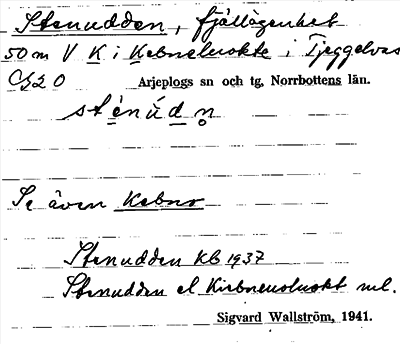 Stenudden, fjällägenhet
50 m V K i Kebneluokte i Tjeggelvas
C20 Arjeplogs sn och tg, Norrbottens län.
sténúdn̥
Se även Kebner
Stenudden Kb 1937
Stenudden el Kirbneuoluokt ml.
Sigvard Wallström, 1941.